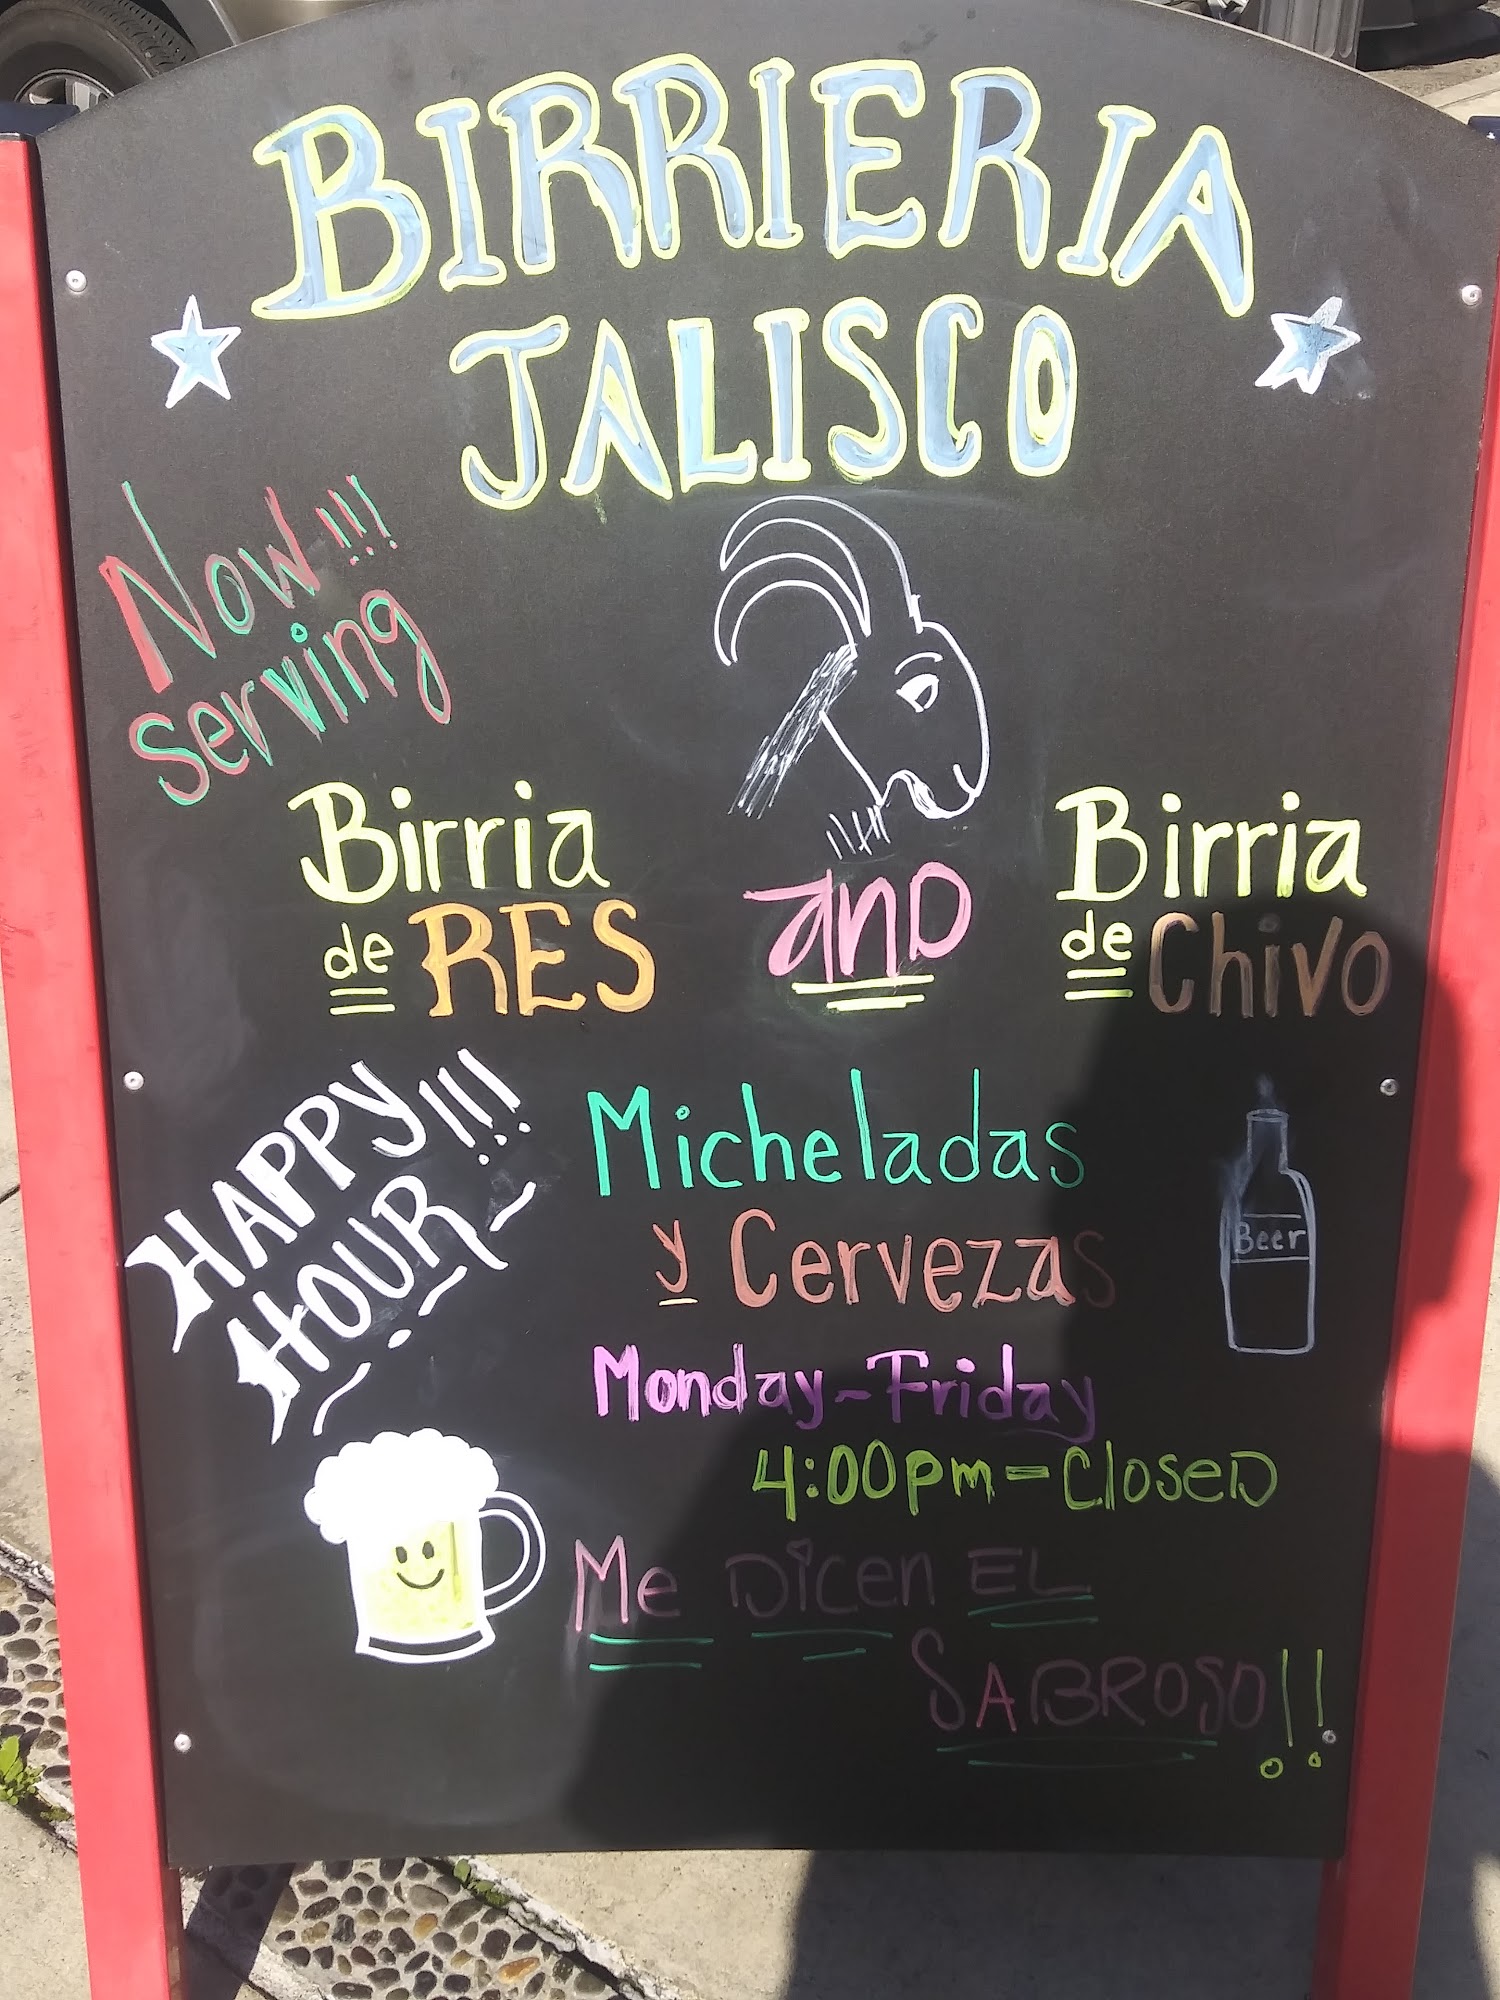 BIRRIERIA
JALISCO
Now!!!
serving
Birria
de RES
and
Birria
de Chivo
HAPPY
HOUR!!!
Micheladas
y Cervezas
Beer
Monday-Friday
4:00pm-Closed
Me Dicen EL
SABROSO!!